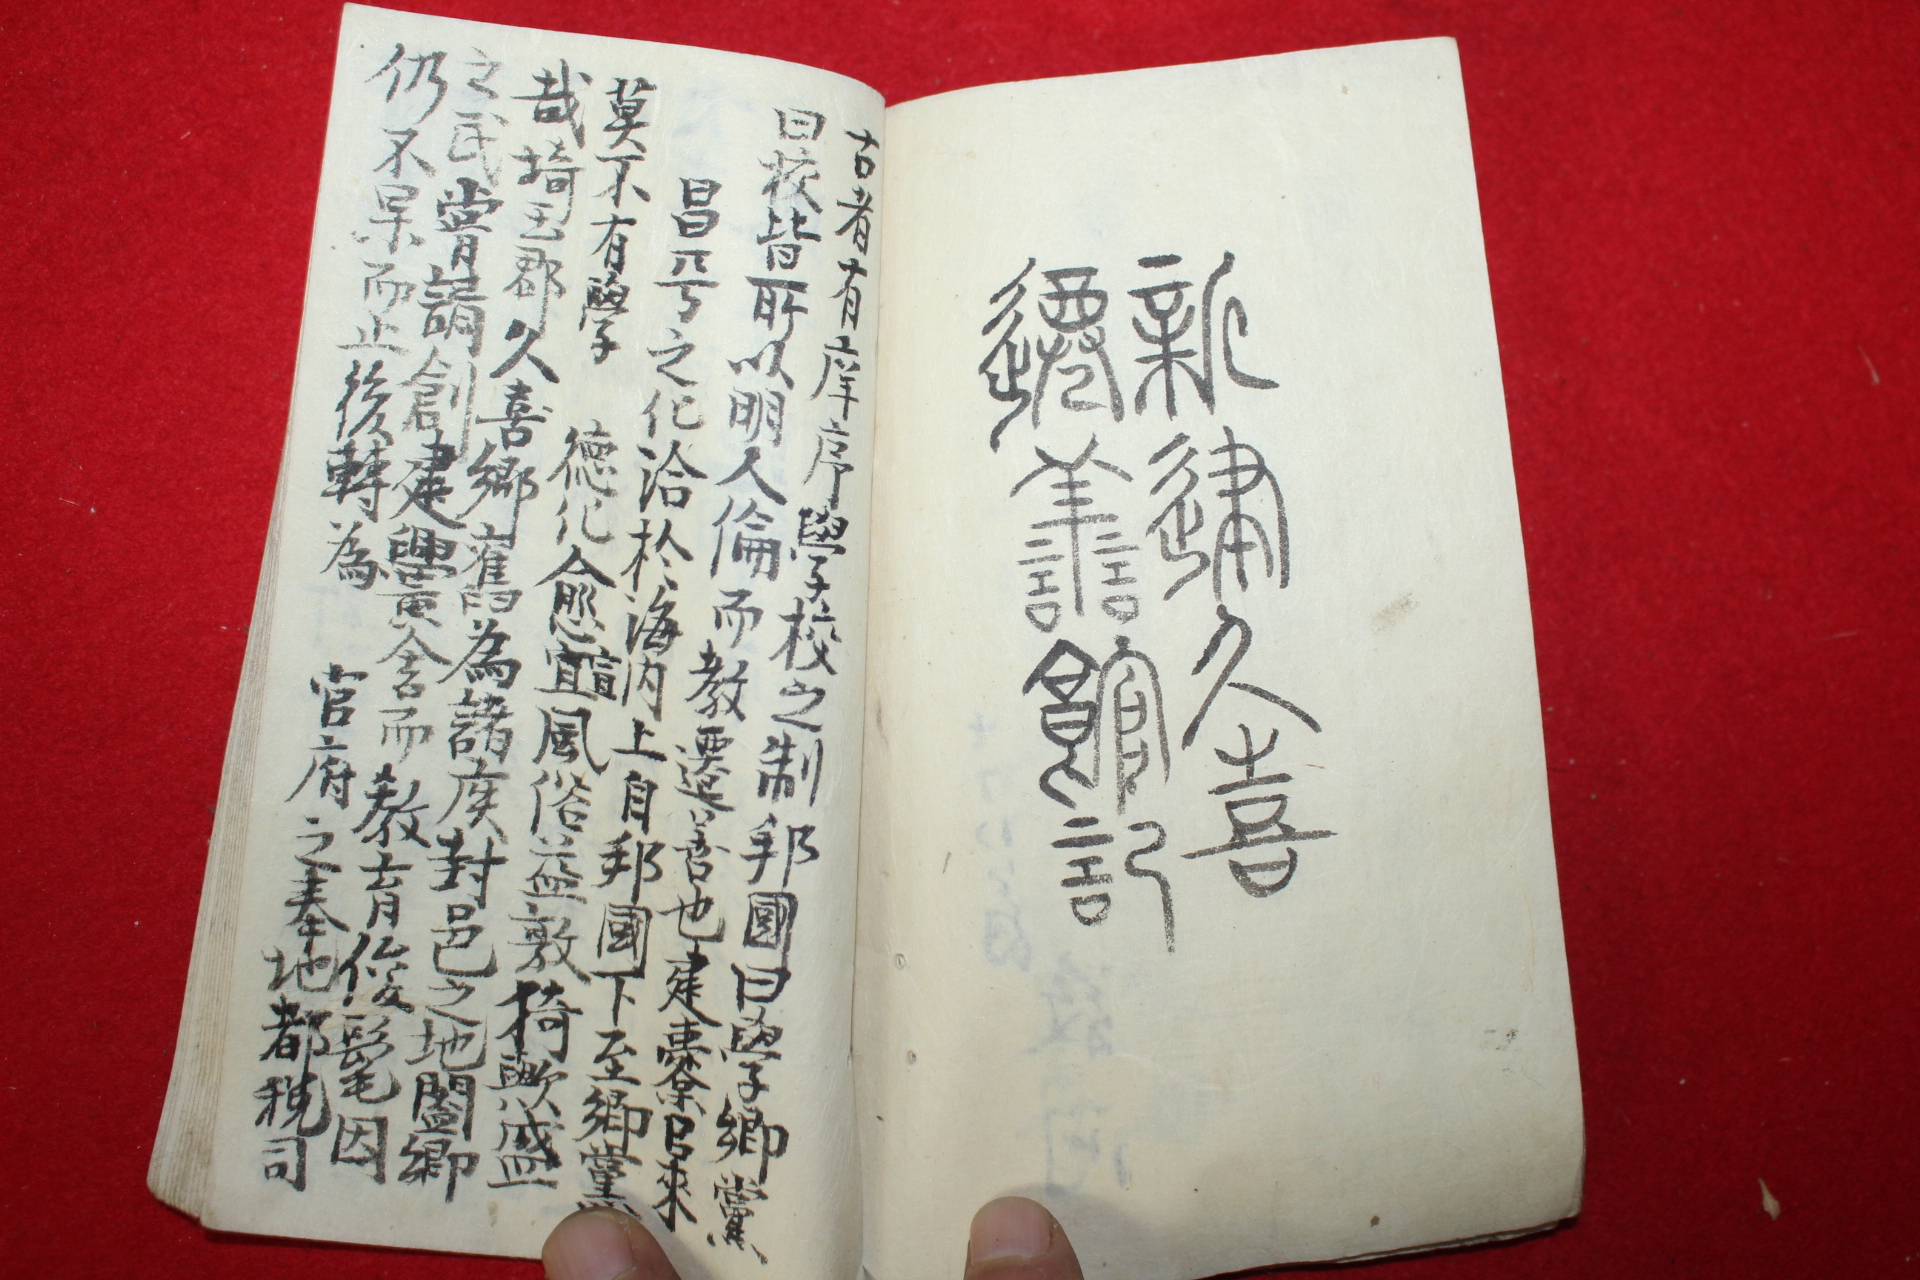 新建久喜
遷善館記
古者有庠序學校之制邦國曰學鄉黨
曰校皆所以明人倫而教遷善也建櫜㠯来
昌平之化洽於海内上自邦國下至鄉黨
莫不有學 德化愈宣風俗益敦猗歟盛
哉埼玉郡久喜鄉舊為諸侯封邑之地闔鄉
之民嘗請創建黌舍而教育俊髦因
仍不果而止後轉為 官府之奉地都税司